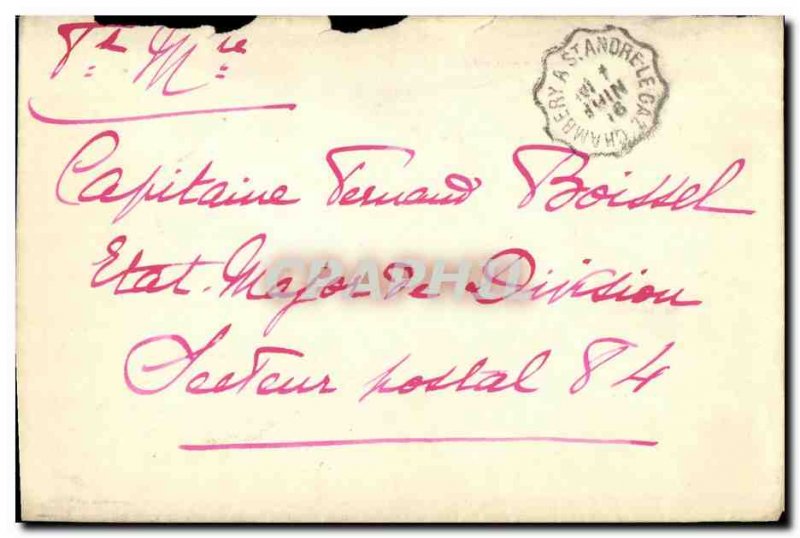 Fd Mre
Capitaine Fernand Boissel
Etat-Major de Division
Secteur postal 84
CHAMBERY A ST ANDRE-LE-GAZ
JUIN
16
CPAPHIL